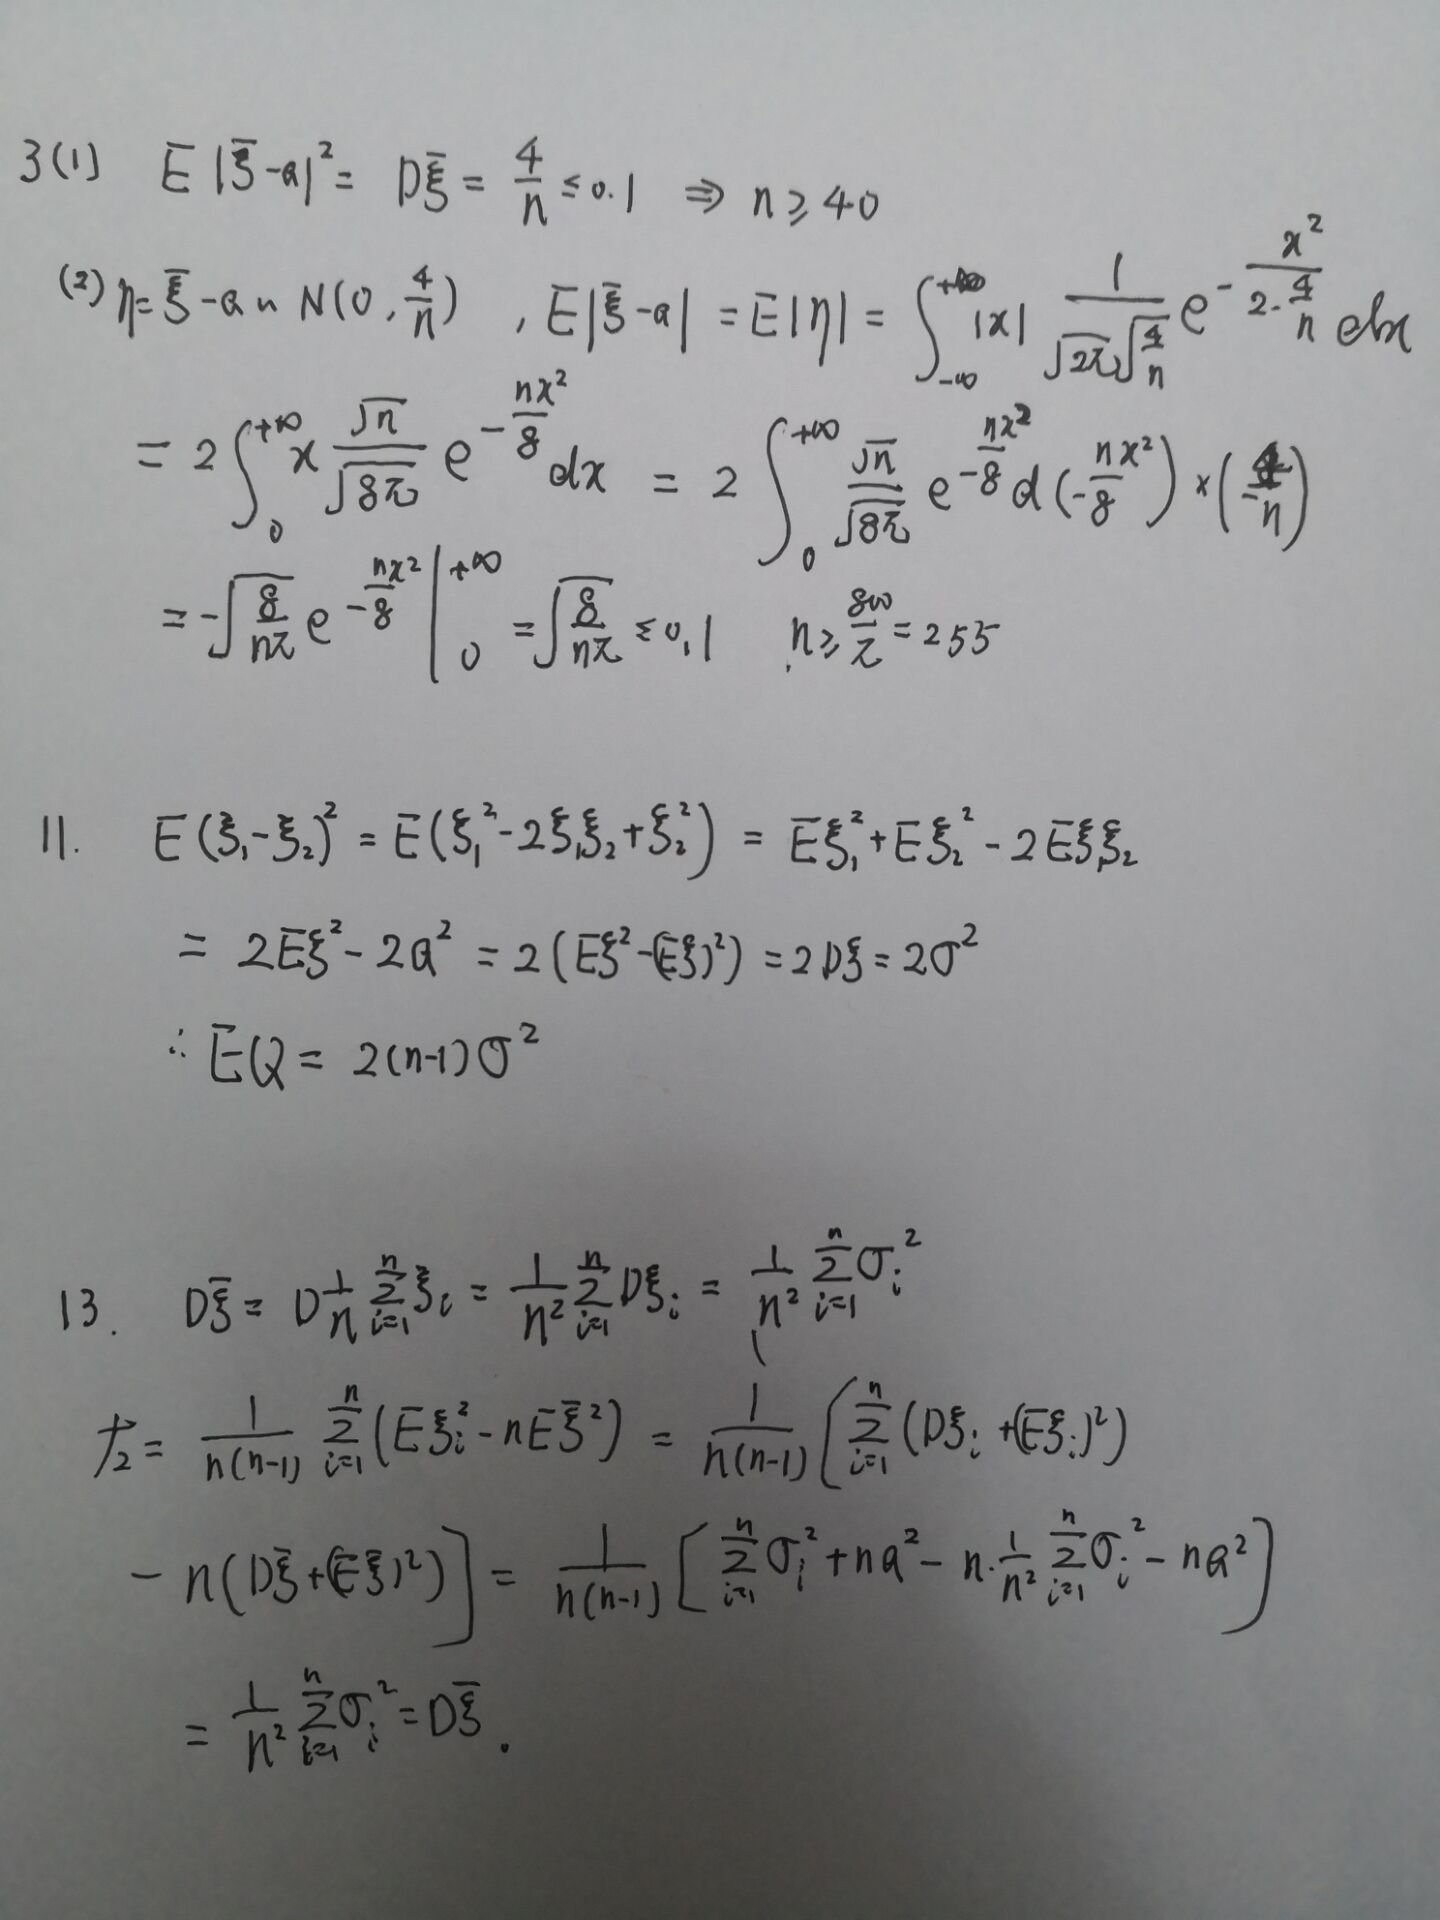 3(1) E|ξ̄-a|² = Dξ̄ = 4/n ≤ 0.1 ⇒ n ≥ 40
(2) η = ξ̄-a ~ N(0, 4/n), E|ξ̄-a| = E|η| = ∫_{-∞}^{+∞} |x| 1/(√2π √(4/n)) e^{-x²/(2·4/n)} dx
= 2∫_0^{+∞} x √n/√8π e^{-nx²/8} dx = 2∫_0^{+∞} √n/√8π e^{-nx²/8} d(-nx²/8) × (-4/n)
= -√(8/nπ) e^{-nx²/8} |_0^{+∞} = √(8/nπ) ≤ 0.1 n ≥ 800/π = 255
11. E(ξ₁-ξ₂)² = E(ξ₁²-2ξ₁ξ₂+ξ₂²) = Eξ₁²+Eξ₂²-2Eξ₁ξ₂
= 2Eξ²-2a² = 2(Eξ²-(Eξ)²) = 2Dξ = 2σ²
∴ EQ = 2(n-1)σ²
13. Dξ̄ = D 1/n Σ_{i=1}^n ξ_i = 1/n² Σ_{i=1}^n Dξ_i = 1/n² Σ_{i=1}^n σ_i²
右 = 1/(n(n-1)) Σ_{i=1}^n (Eξ_i²-nEξ̄²) = 1/(n(n-1)) [Σ_{i=1}^n (Dξ_i+(Eξ_i)²)
- n(Dξ̄+(Eξ̄)²)] = 1/(n(n-1)) [Σ_{i=1}^n σ_i²+na²-n·1/n² Σ_{i=1}^n σ_i²-na²]
= 1/n² Σ_{i=1}^n σ_i² = Dξ̄.